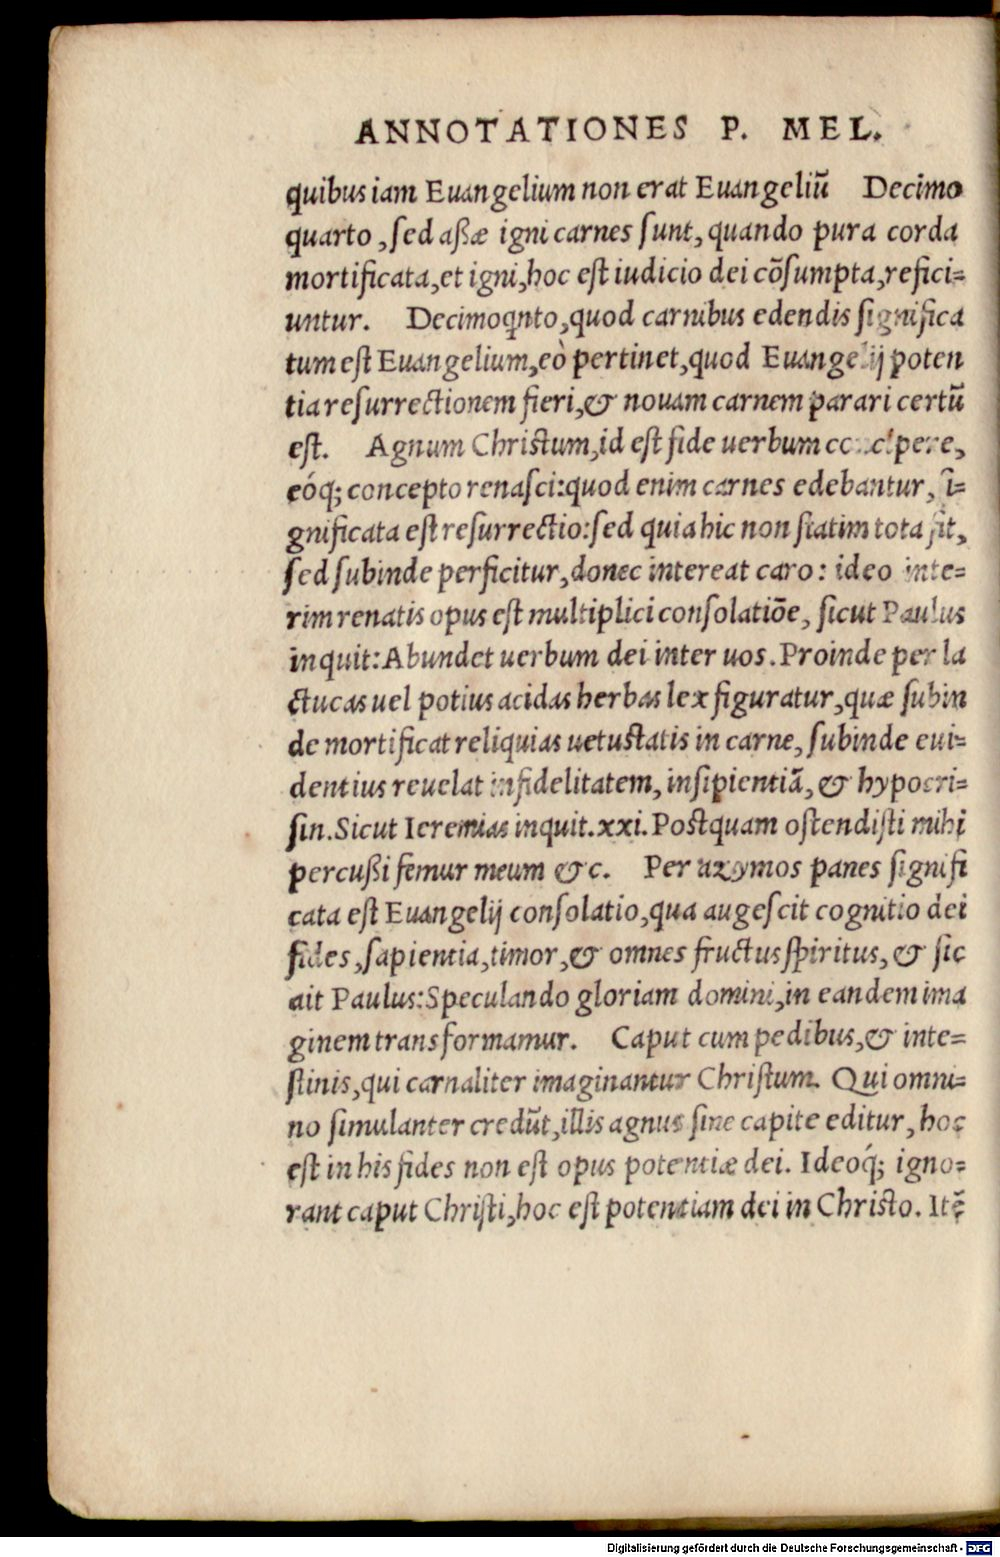 ANNOTATIONES P. MEL.
quibus iam Euangelium non erat Euangeliũ Decimo
quarto, sed aßæ igni carnes sunt, quando pura corda
mortificata, et igni, hoc est iudicio dei cõsumpta, refici-
untur. Decimoqnto, quod carnibus edendis significa
tum est Euangelium, eò pertinet, quod Euangelij poten
tia resurrectionem fieri, & nouam carnem parari certũ
est. Agnum Christum, id est fide uerbum concipere,
eóq; concepto renasci: quod enim carnes edebantur, si-
gnificata est resurrectio: sed quia hic non statim tota fit,
sed subinde perficitur, donec intereat caro: ideo inte-
rim renatis opus est multiplici consolatiõe, sicut Paulus
inquit: Abundet uerbum dei inter uos. Proinde per la
ctucas uel potius acidas herbas lex figuratur, quæ subin
de mortificat reliquias uetustatis in carne, subinde eui-
dentius reuelat infidelitatem, insipientiã, & hypocri-
sin. Sicut Ieremias inquit. xxi. Postquam ostendisti mihi
percußi femur meum &c. Per azymos panes signifi
cata est Euangelij consolatio, qua augescit cognitio dei
fides, sapientia, timor, & omnes fructus spiritus, & sic
ait Paulus: Speculando gloriam domini, in eandem ima
ginem transformamur. Caput cum pedibus, & inte-
stinis, qui carnaliter imaginantur Christum. Qui omni-
no simulanter credũt, illis agnus sine capite editur, hoc
est in his fides non est opus potentiæ dei. Ideoq́; igno-
rant caput Christi, hoc est potentiam dei in Christo. Itẽ
Digitalisierung gefördert durch die Deutsche Forschungsgemeinschaft - DFG